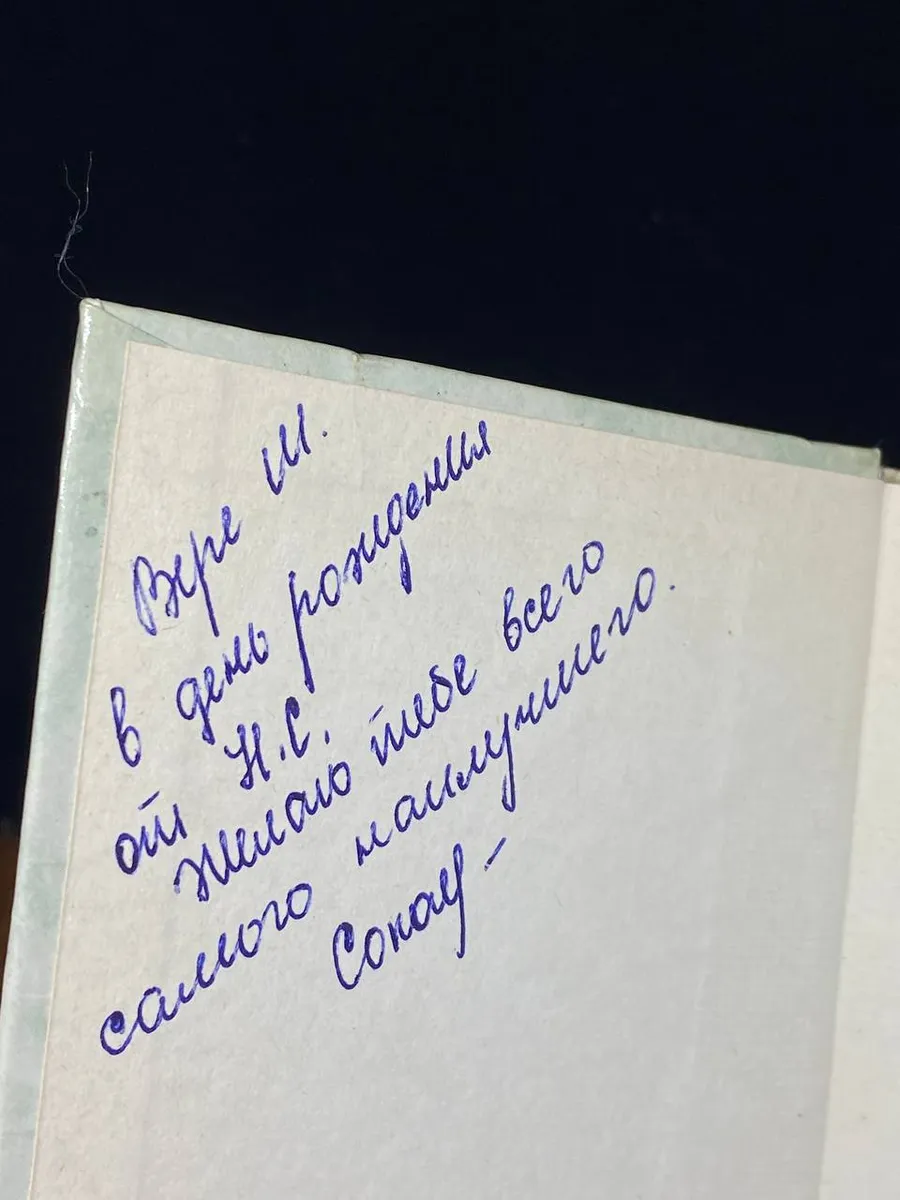 Вере Ш.
в день рождения
от Н.С.
Желаю тебе всего
самого наилучшего.